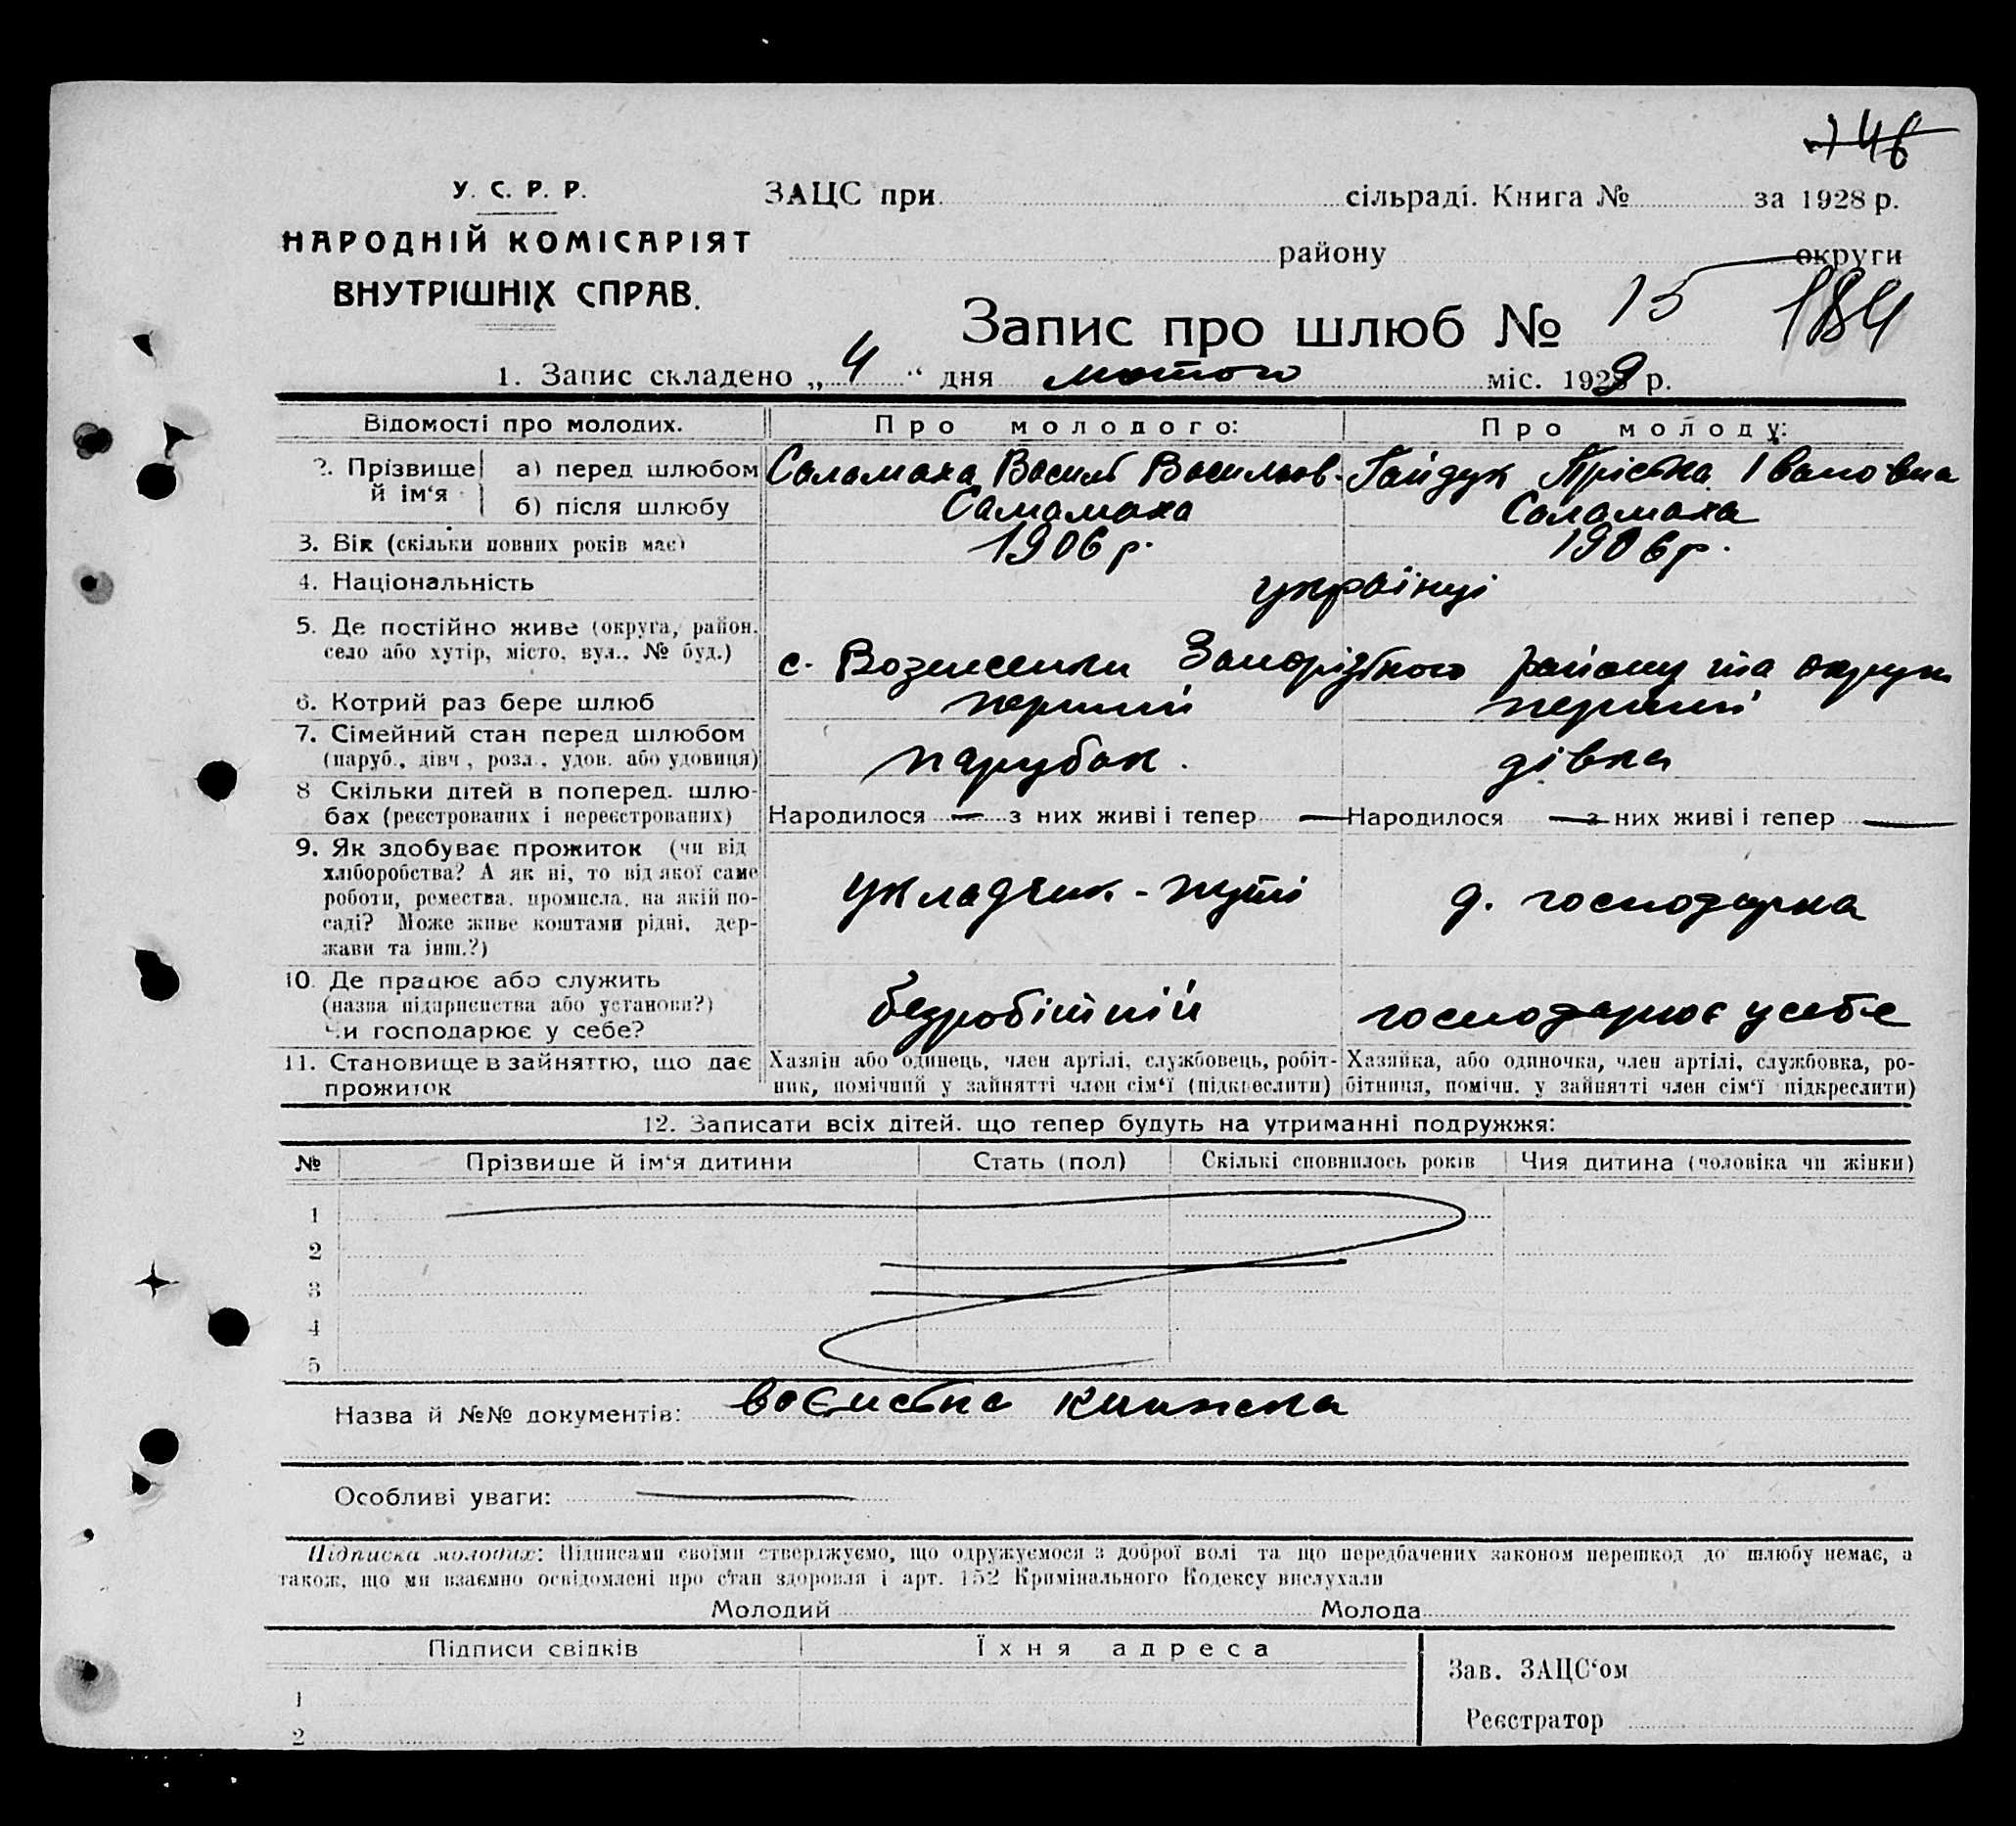 146
У. С. Р. Р.
НАРОДНІЙ КОМІСАРІЯТ
ВНУТРІШНІХ СПРАВ.
ЗАЦС при сільраді. Книга № за 1928 р.
району округи
Запис про шлюб № 15 184
1. Запис складено „ 4 “ дня лютого міс. 1929 р.
Відомості про молодих. Про молодого: Про молоду:
2. Прізвище й ім‘я а) перед шлюбом Саламаха Василь Васильов. Гайдук Ївановна
б) після шлюбу Саламаха Саламаха
3. Вік (скільки повних років має) 1906 р. 1906 р.
4. Національність українці
5. Де постійно живе (округа, район,
село або хутір, місто, вул., № буд.) с. Вознесенки Запорізького району та округи
6. Котрий раз бере шлюб перший перший
7. Сімейний стан перед шлюбом
(паруб., дівч., розл., удов. або удовиця) парубок. дівка
8 Скільки дітей в поперед. шлю-
бах (реєстрованих і нереєстрованих) Народилося — з них живі і тепер — Народилося — з них живі і тепер —
9. Як здобуває прожиток (чи від
хліборобства? А як ні, то від якої саме
роботи, ремества, промисла, на якій по-
саді? Може живе коштами рідні, дер-
жави та інш.?)
укладчик - путі д. господарка
10. Де працює або служить
(назва підприємства або установи?)
Чи господарює у себе?
безробітній господарює у себе
11. Становище в зайняттю, що дає
прожиток
Хазяїн або одинець, член артілі, службовець, робіт-
ник, помічний у зайнятті член сім‘ї (підкреслити)
Хазяйка, або одиночка, член артілі, службовка, ро-
бітниця, помічн. у зайнятті член сім‘ї підкреслити)
12. Записати всіх дітей. що тепер будуть на утриманні подружжя:
№ Прізвише й ім‘я дитини Стать (пол) Скількі сповнилось років Чия дитина (чоловіка чи жінки)
1
2
3
4
5
Назва й №№ документів: книжка
Особливі уваги: —
Підписка молодих: Підписами своїми стверджуємо, що одружуємося з доброї волі та що передбачених законом перешкод до шлюбу немає, а
також, що ми взаємно освідомлені про стан здоровля і арт. 152 Кримінального Кодексу вислухали
Молодий Молода
Підписи свідків Їхня адреса
Зав. ЗАЦС‘ом
1
Реєстратор
2